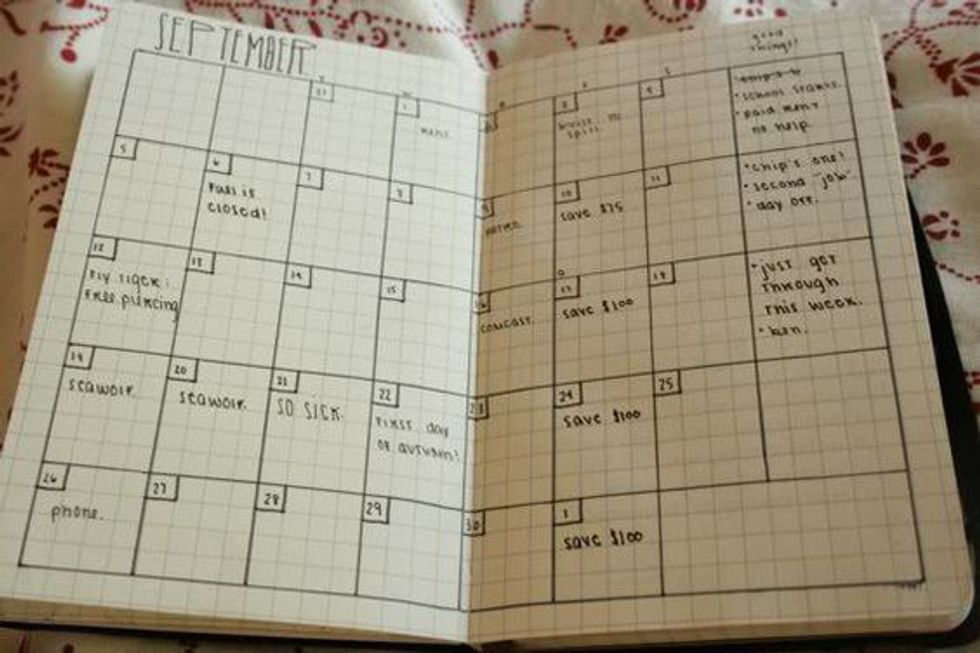 SEPTEMBER
good
things!
31
1
rent.
3
4
• school starts.
• paid rent
no help
5
6
Fall is
closed!
7
8
9
10
save $75
11
• chip's one!
• second "job"
• day off.
12
Fly Tiger:
Free piercing
13
14
15
16
comcast.
17
save $100
18
• just got
through
this week.
• ben.
19
seawolf.
20
seawolf.
21
SO SICK.
22
First day
of autumn!
23
24
save $100
25
26
phone.
27
28
29
30
1
save $100